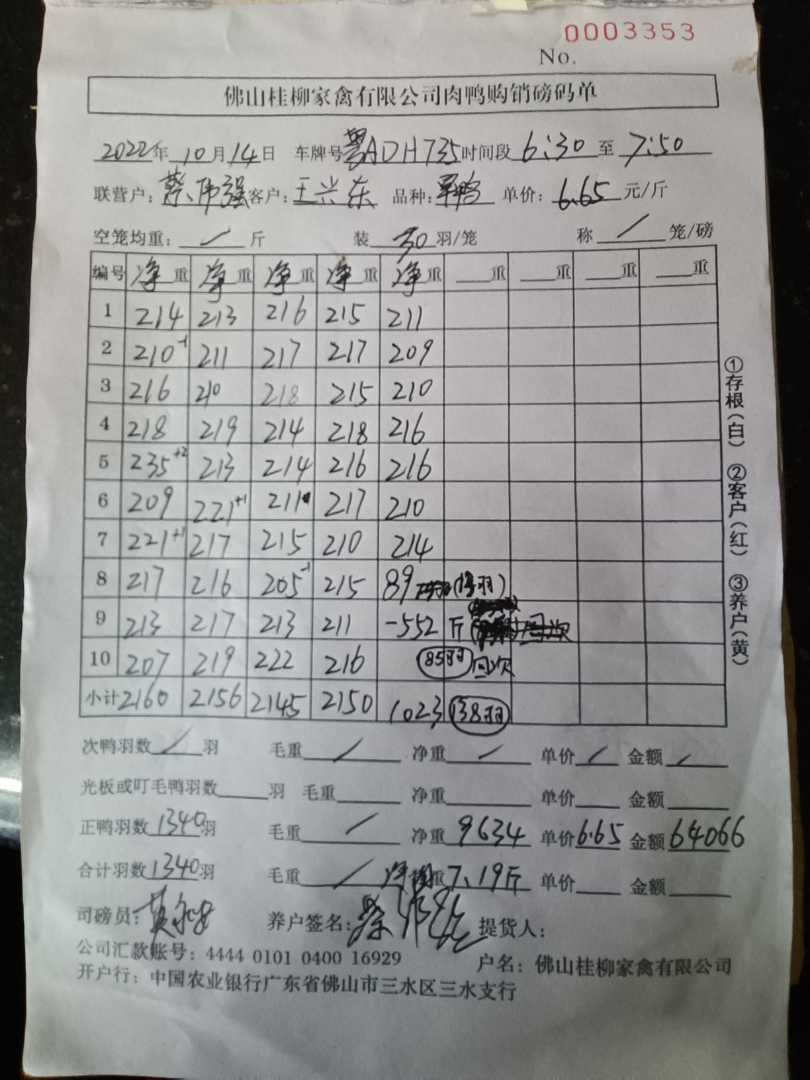 0003353
No.
佛山桂柳家禽有限公司肉鸭购销磅码单
2022年 10月14日 车牌号粤ADH735时间段6:30至7:50
联营户:蔡伟强客户:王兴东 品种:军鸭 单价:6.65元/斤
空笼均重:/斤 装30羽/笼 称/笼/磅
编号 净重 净重 净重 净重 净重 重 重 重 重
1 214 213 216 215 211
2 210-1 211 217 217 209
3 216 210 218 215 210
4 218 219 214 218 216
5 235+2 213 214 216 216
6 209 221+1 211 217 210
7 221+1 217 215 210 214
8 217 216 205-1 215 89 (13羽)
9 213 217 213 211 -552斤 回次
10 207 219 222 216 85羽 回次
小计 2160 2156 2145 2150 1023 138羽
次鸭羽数/羽 毛重/ 净重/ 单价/ 金额/
光板或叮毛鸭羽数 羽 毛重 净重 单价 金额
正鸭羽数1340羽 毛重/ 净重9634 单价6.65 金额64066
合计羽数1340羽 毛重/ 净重7.19斤 单价 金额
司磅员: 养户签名: 提货人:
公司汇款账号:4444 0101 0400 16929 户名:佛山桂柳家禽有限公司
开户行:中国农业银行广东省佛山市三水区三水支行
①存根(白) ②客户(红) ③养户(黄)